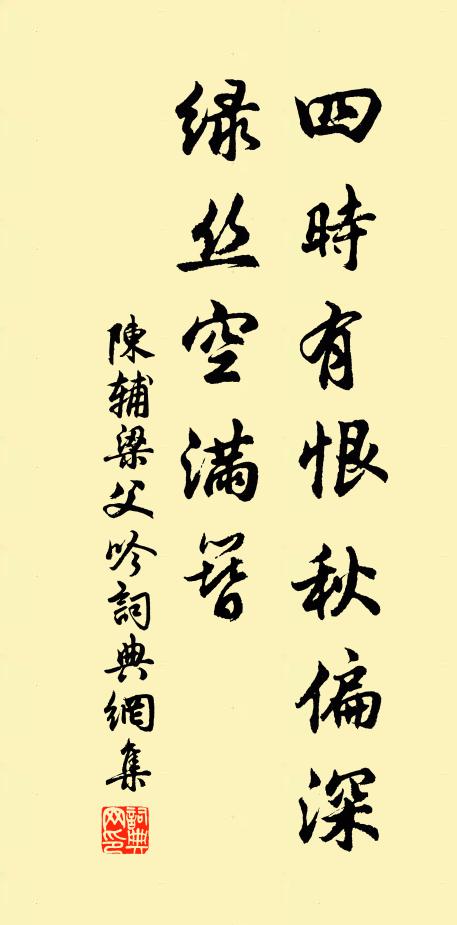 四時有恨秋偏深
绿丝空满簪
陳辅梁父吟詞典網集
詞典网印